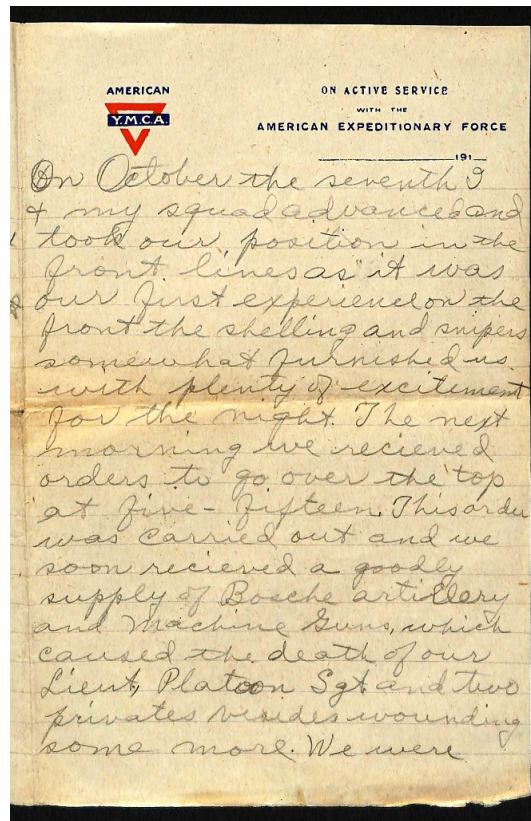 AMERICAN
Y.M.C.A.
ON ACTIVE SERVICE
WITH THE
AMERICAN EXPEDITIONARY FORCE
191
On October the seventh I
& my squad advanced and
took our position in the
front lines as it was
our first experience on the
front the shelling and snipers
somewhat furnished us
with plenty of excitiement
for the night. The next
morning we recieved
orders to go over the top
at five-fifteen. This order
was carried out and we
soon recieved a goodly
supply of Bosche artillery
and Machine Guns, which
caused the death of our
Lieut, Platoon Sgt and two
privates besides wounding
some more. We were